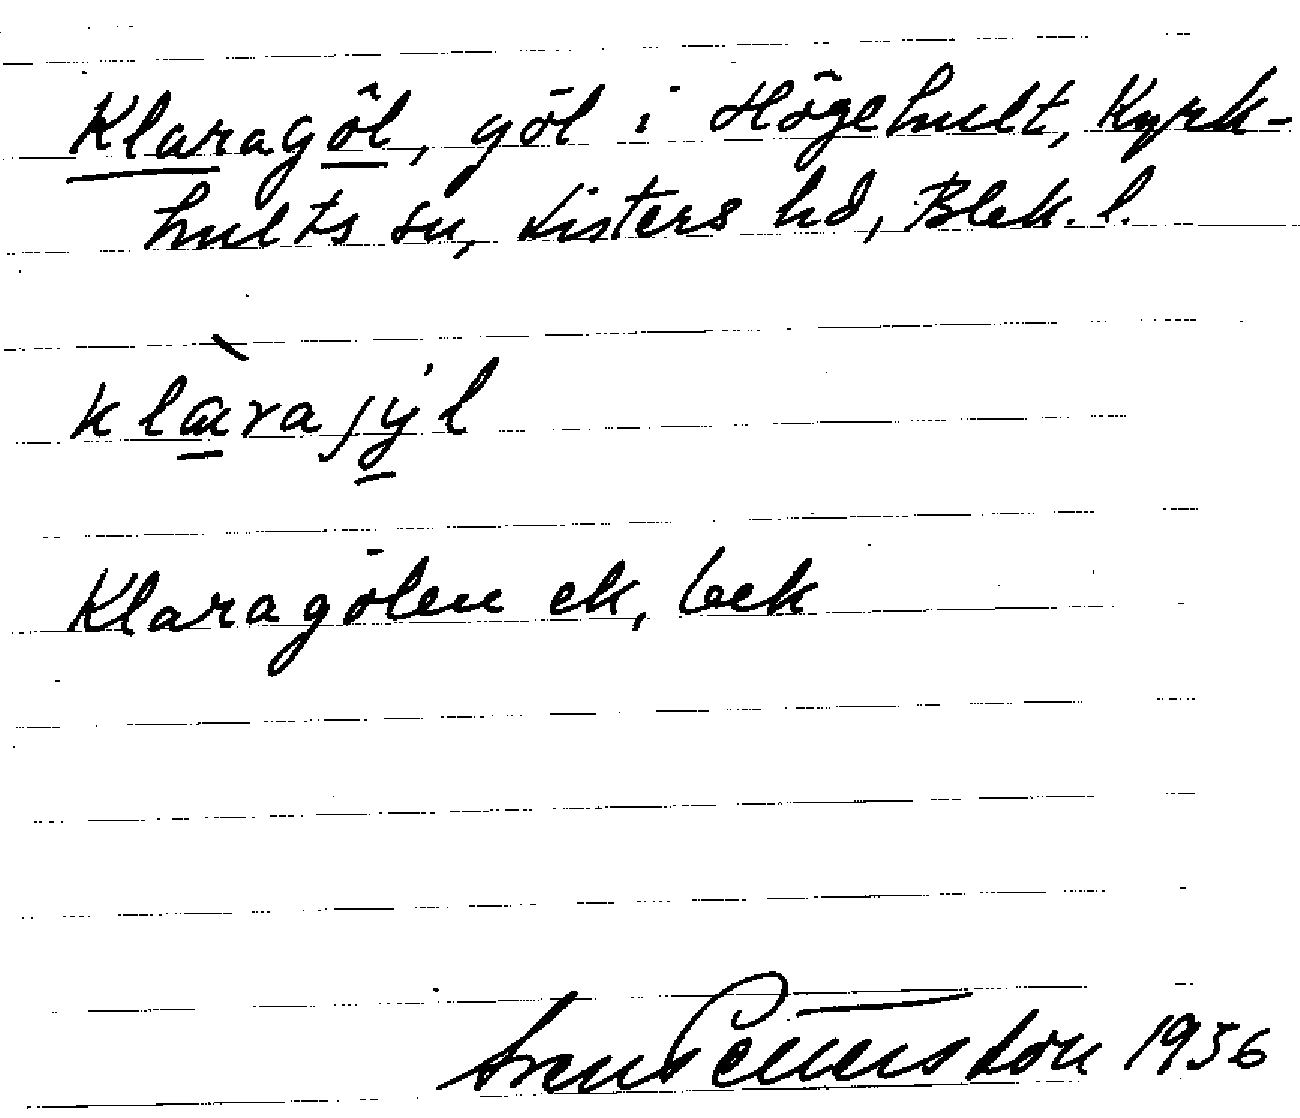 Klaragöl, göl i Högehult, Kyrk-
hults sn, Listers hd, Blek. l.
klàrajýl
Klaragölen ek, bek
Sven Pettersson 1956